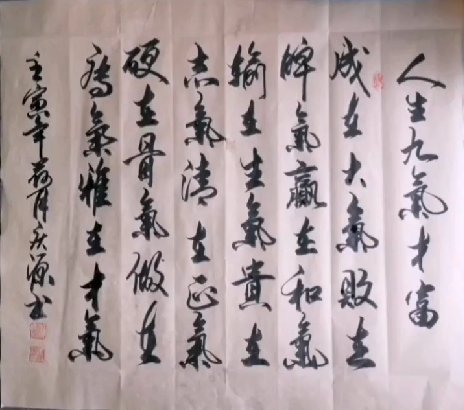 人生九氣才富
成在大氣敗在
脾氣贏在和氣
輸在生氣貴在
志氣清在正氣
硬在骨氣做在
氣雅在才氣
壬寅年春月庆源书